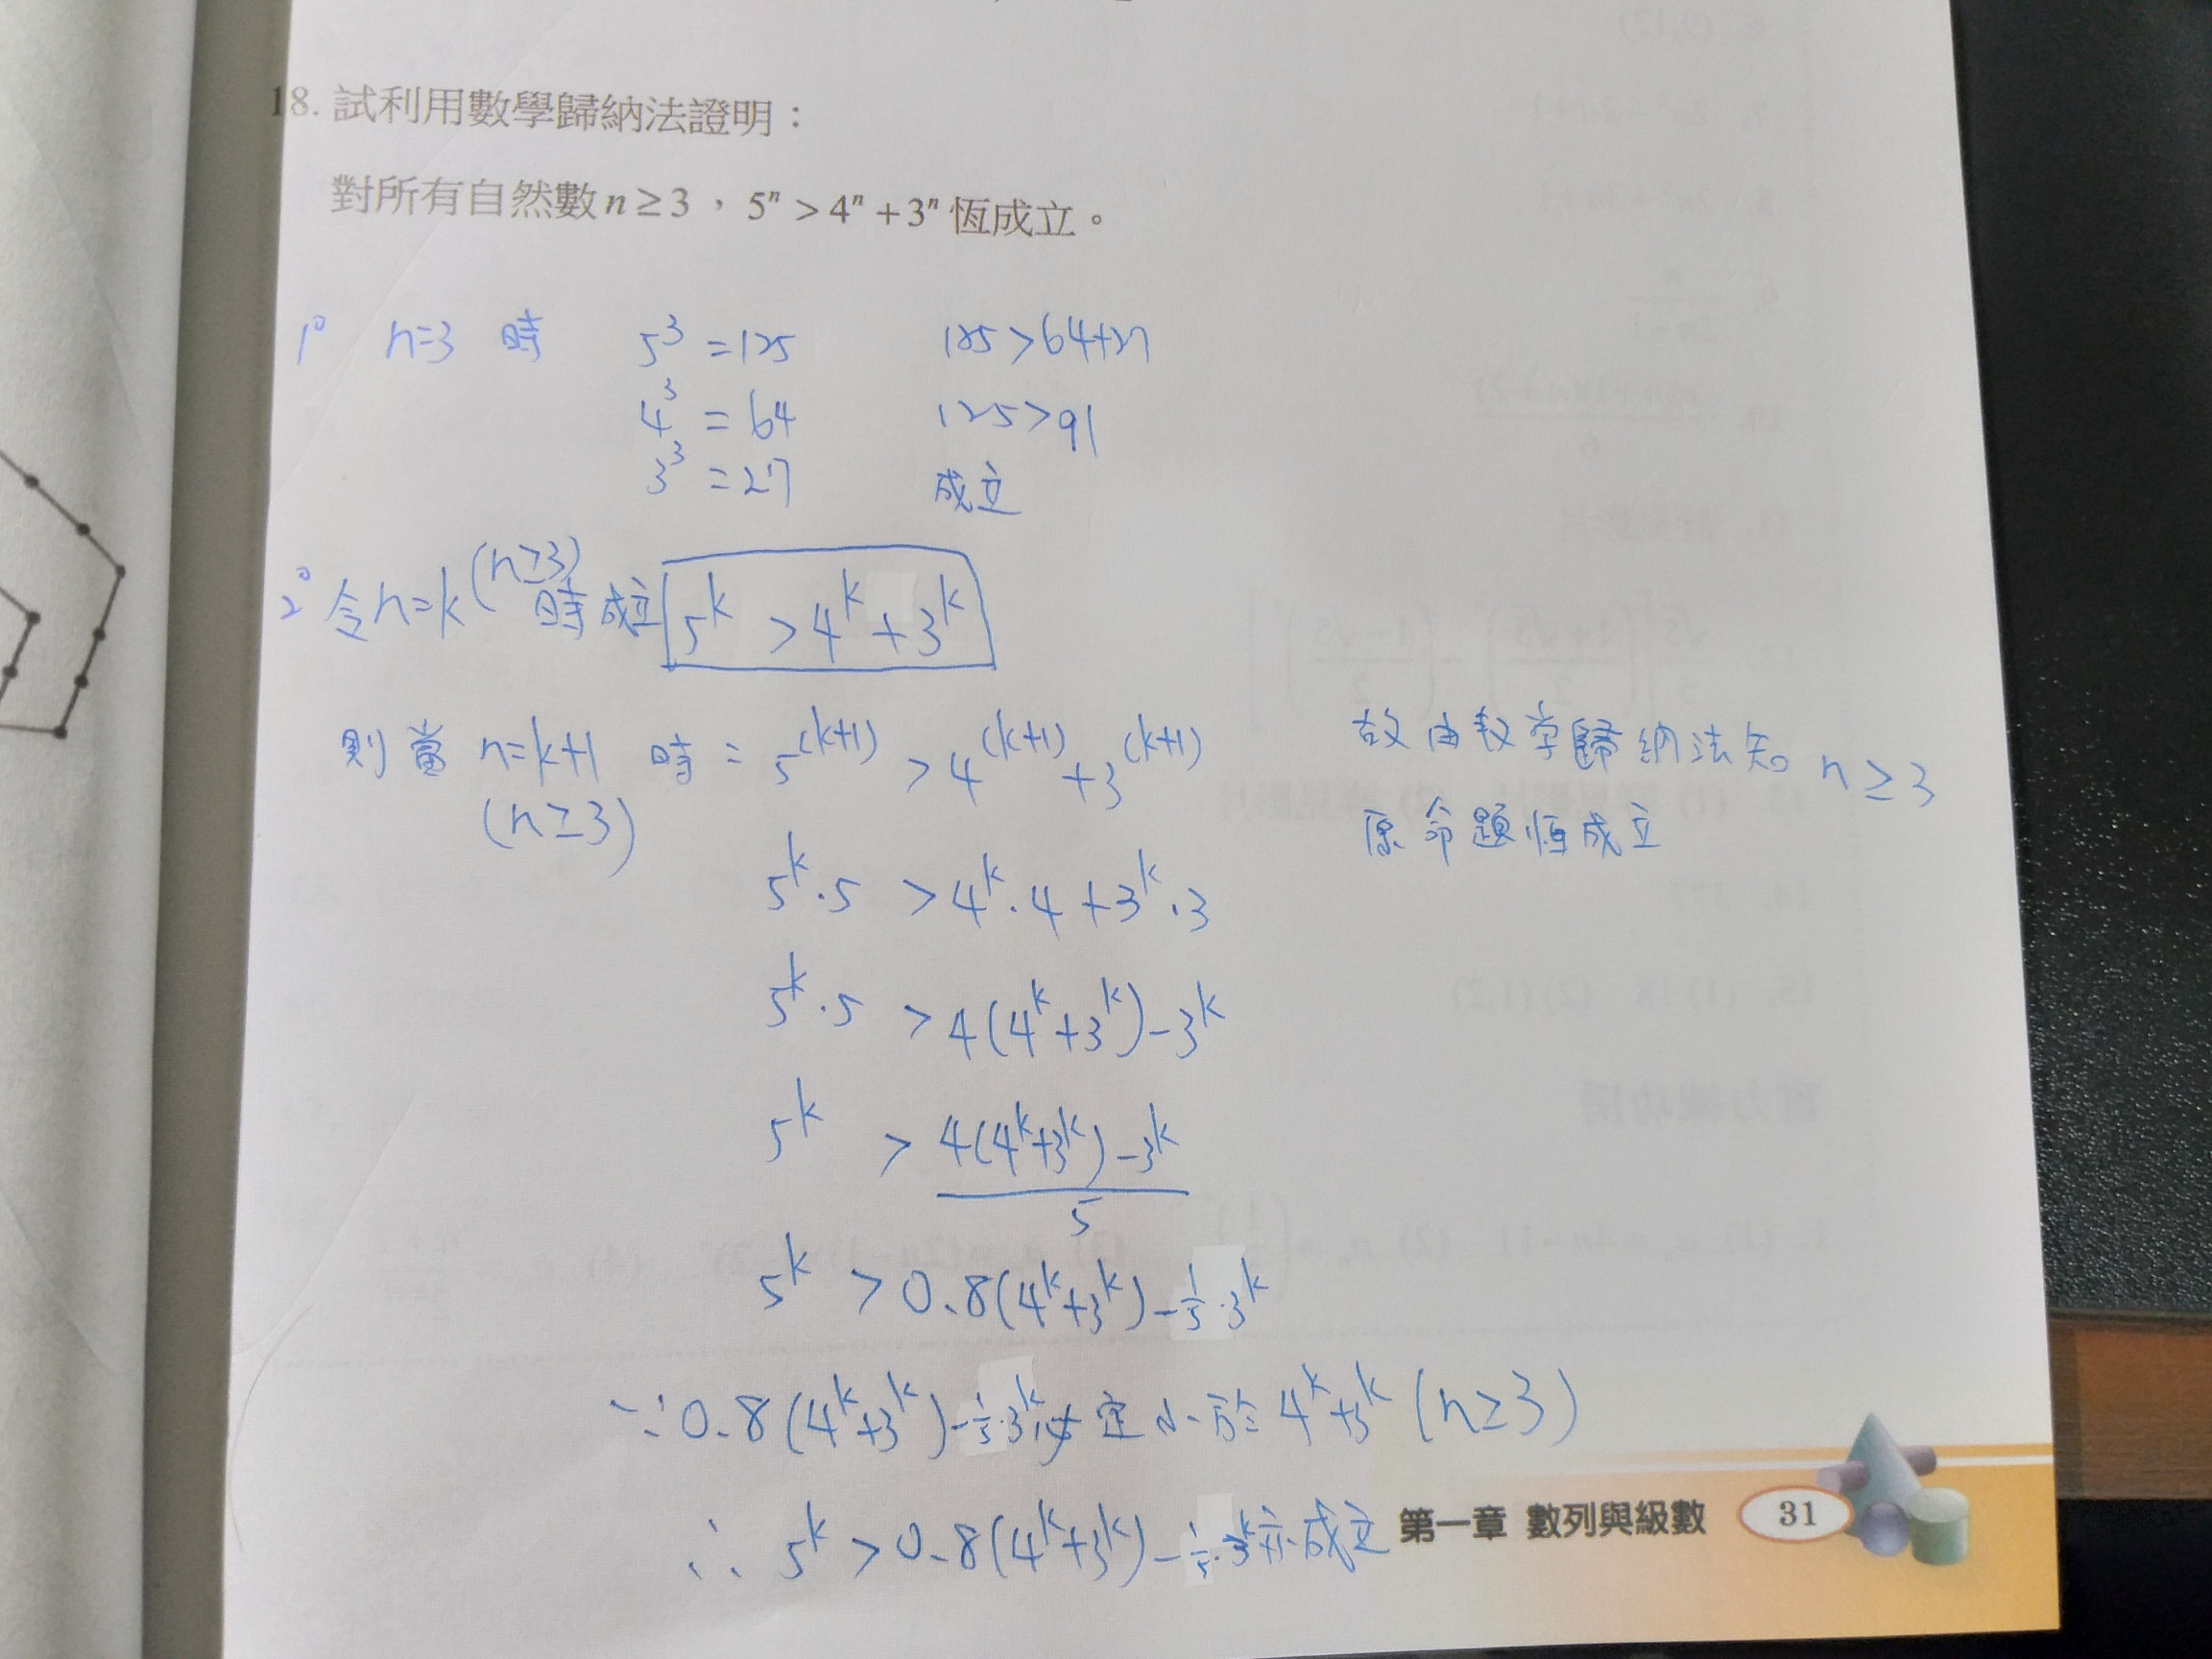 18. 試利用數學歸納法證明：
對所有自然數 n ≥ 3，5ⁿ > 4ⁿ + 3ⁿ 恆成立。
1° n=3 時 5³ = 125 125 > 64+27
4³ = 64 125 > 91
3³ = 27 成立
2° 令 n=k (n≥3) 時成立 5^k > 4^k + 3^k
則當 n=k+1 時 = 5^(k+1) > 4^(k+1) + 3^(k+1)
(n≥3)
5^k · 5 > 4^k · 4 + 3^k · 3
5^k · 5 > 4(4^k + 3^k) - 3^k
5^k > (4(4^k+3^k) - 3^k) / 5
5^k > 0.8(4^k+3^k) - 1/5 · 3^k
∵ 0.8(4^k+3^k) - 1/5 · 3^k 定小於 4^k+3^k (n≥3)
∴ 5^k > 0.8(4^k+3^k) - 1/5 · 3^k 亦成立
故由数学歸納法知 n ≥ 3
原命題恆成立
第一章 數列與級數 31